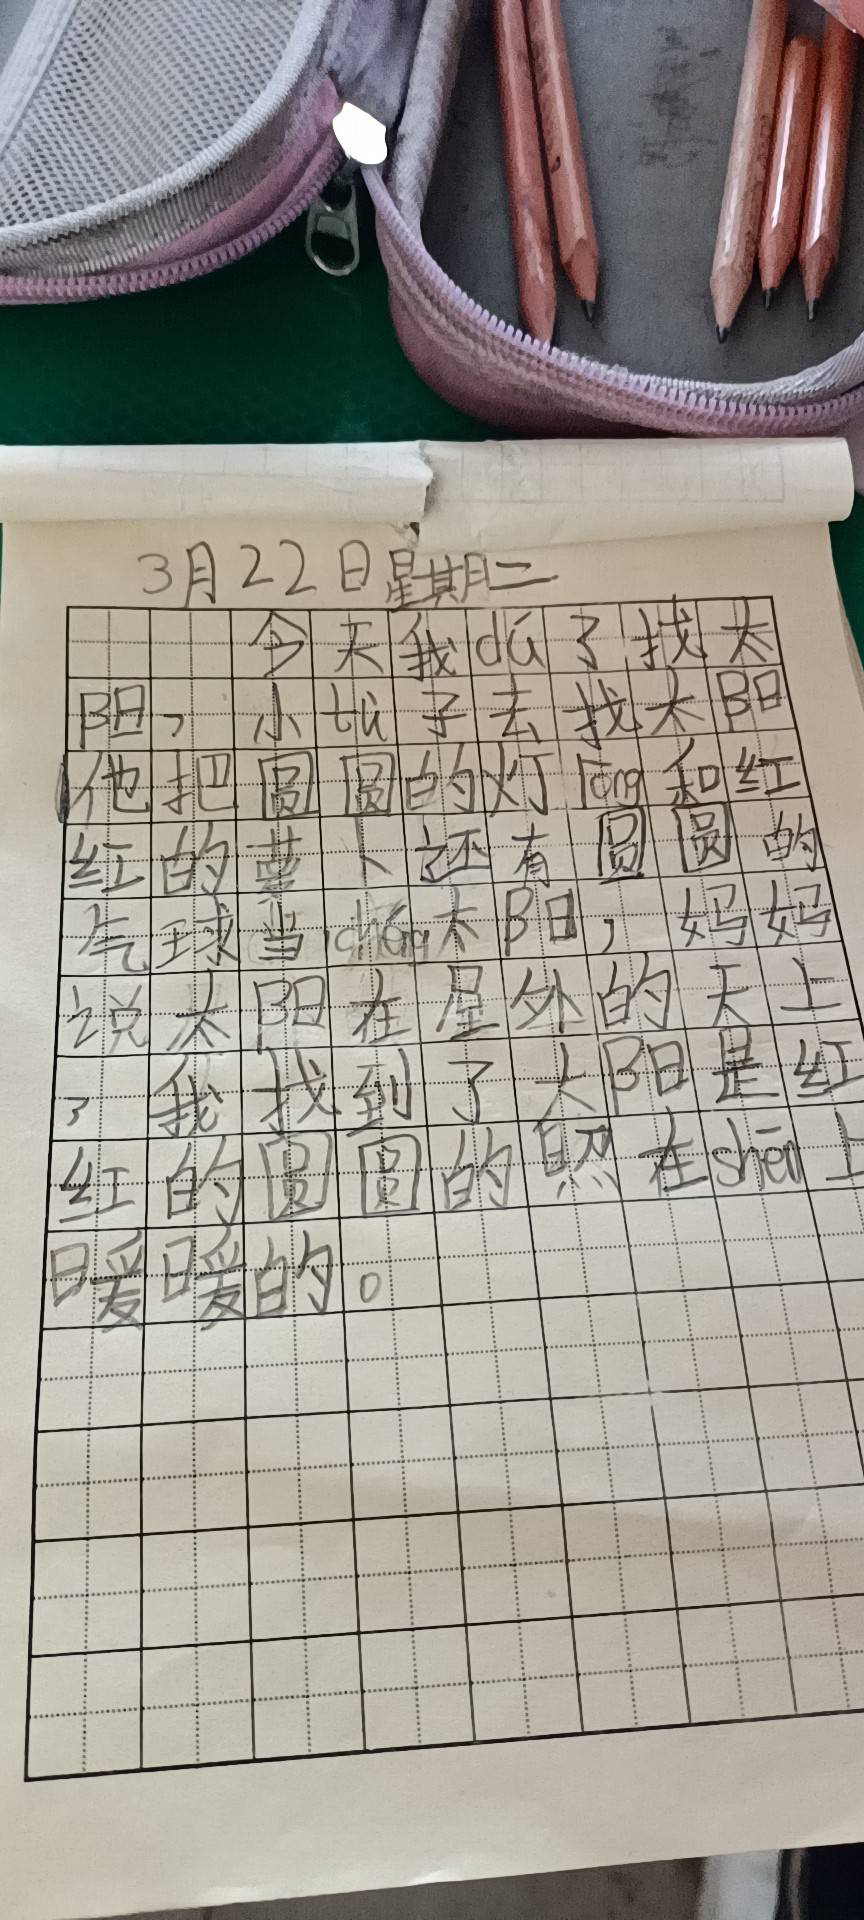 3月22日星期二
今天我dú了找太
阳,小tùi子去找太阳
他把圆圆的灯lóng和红
红的萝卜还有圆圆的
气球当chéng太阳,妈妈
说太阳在屋外的天上
,我找到了太阳是红
红的圆圆的照在shēn上
暖暖的。